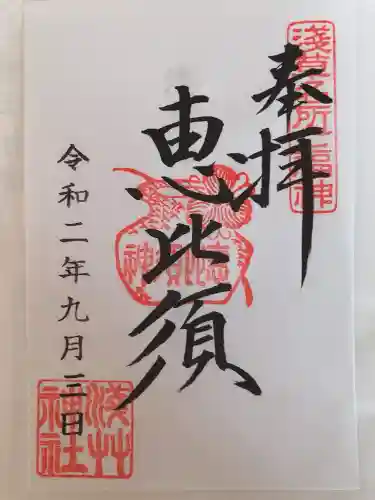 奉拝
淺草名所七福神
恵比須
恵比須神
令和二年九月三日
淺草神社